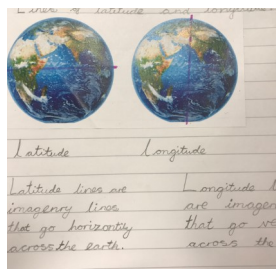 Lines of latitude and longitude
Latitude Longitude
Latitude lines are
imagenry lines
that go horizontily
across the earth.
Longitude l
are imagen
that go ve
across the